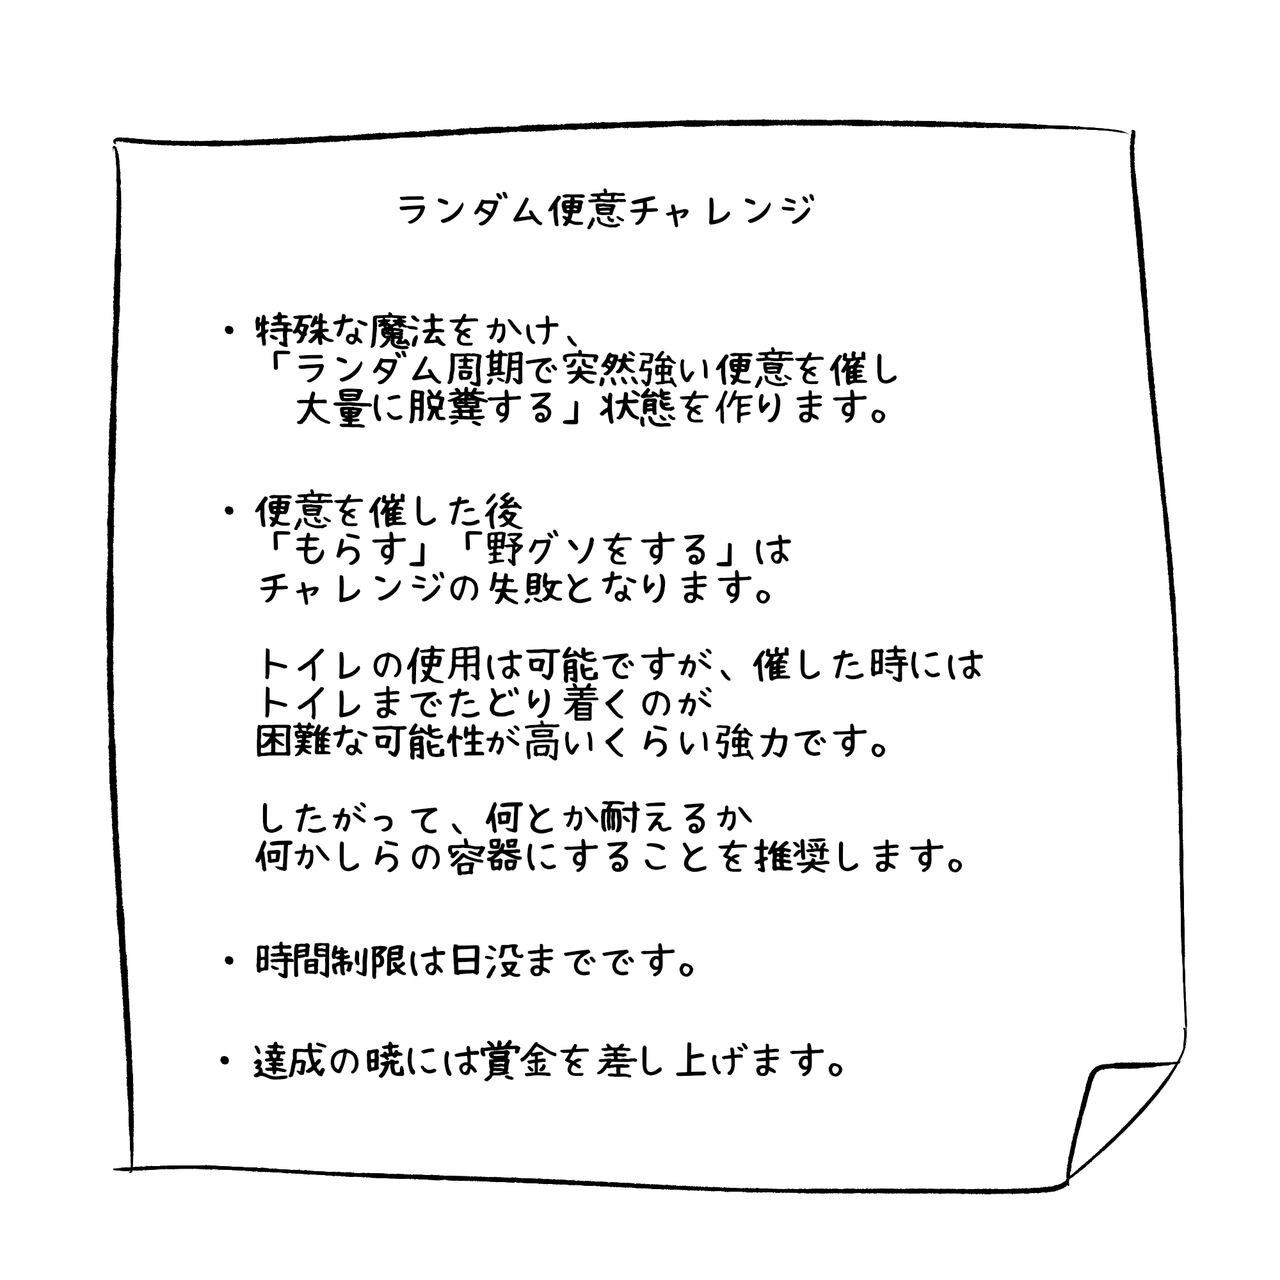 ランダム便意チャレンジ
・特殊な魔法をかけ、
「ランダム周期で突然強い便意を催し
大量に脱糞する」状態を作ります。
・便意を催した後
「もらす」「野グソをする」は
チャレンジの失敗となります。
トイレの使用は可能ですが、催した時には
トイレまでたどり着くのが
困難な可能性が高いくらい強力です。
したがって、何とか耐えるか
何かしらの容器にすることを推奨します。
・時間制限は日没までです。
・達成の暁には賞金を差し上げます。